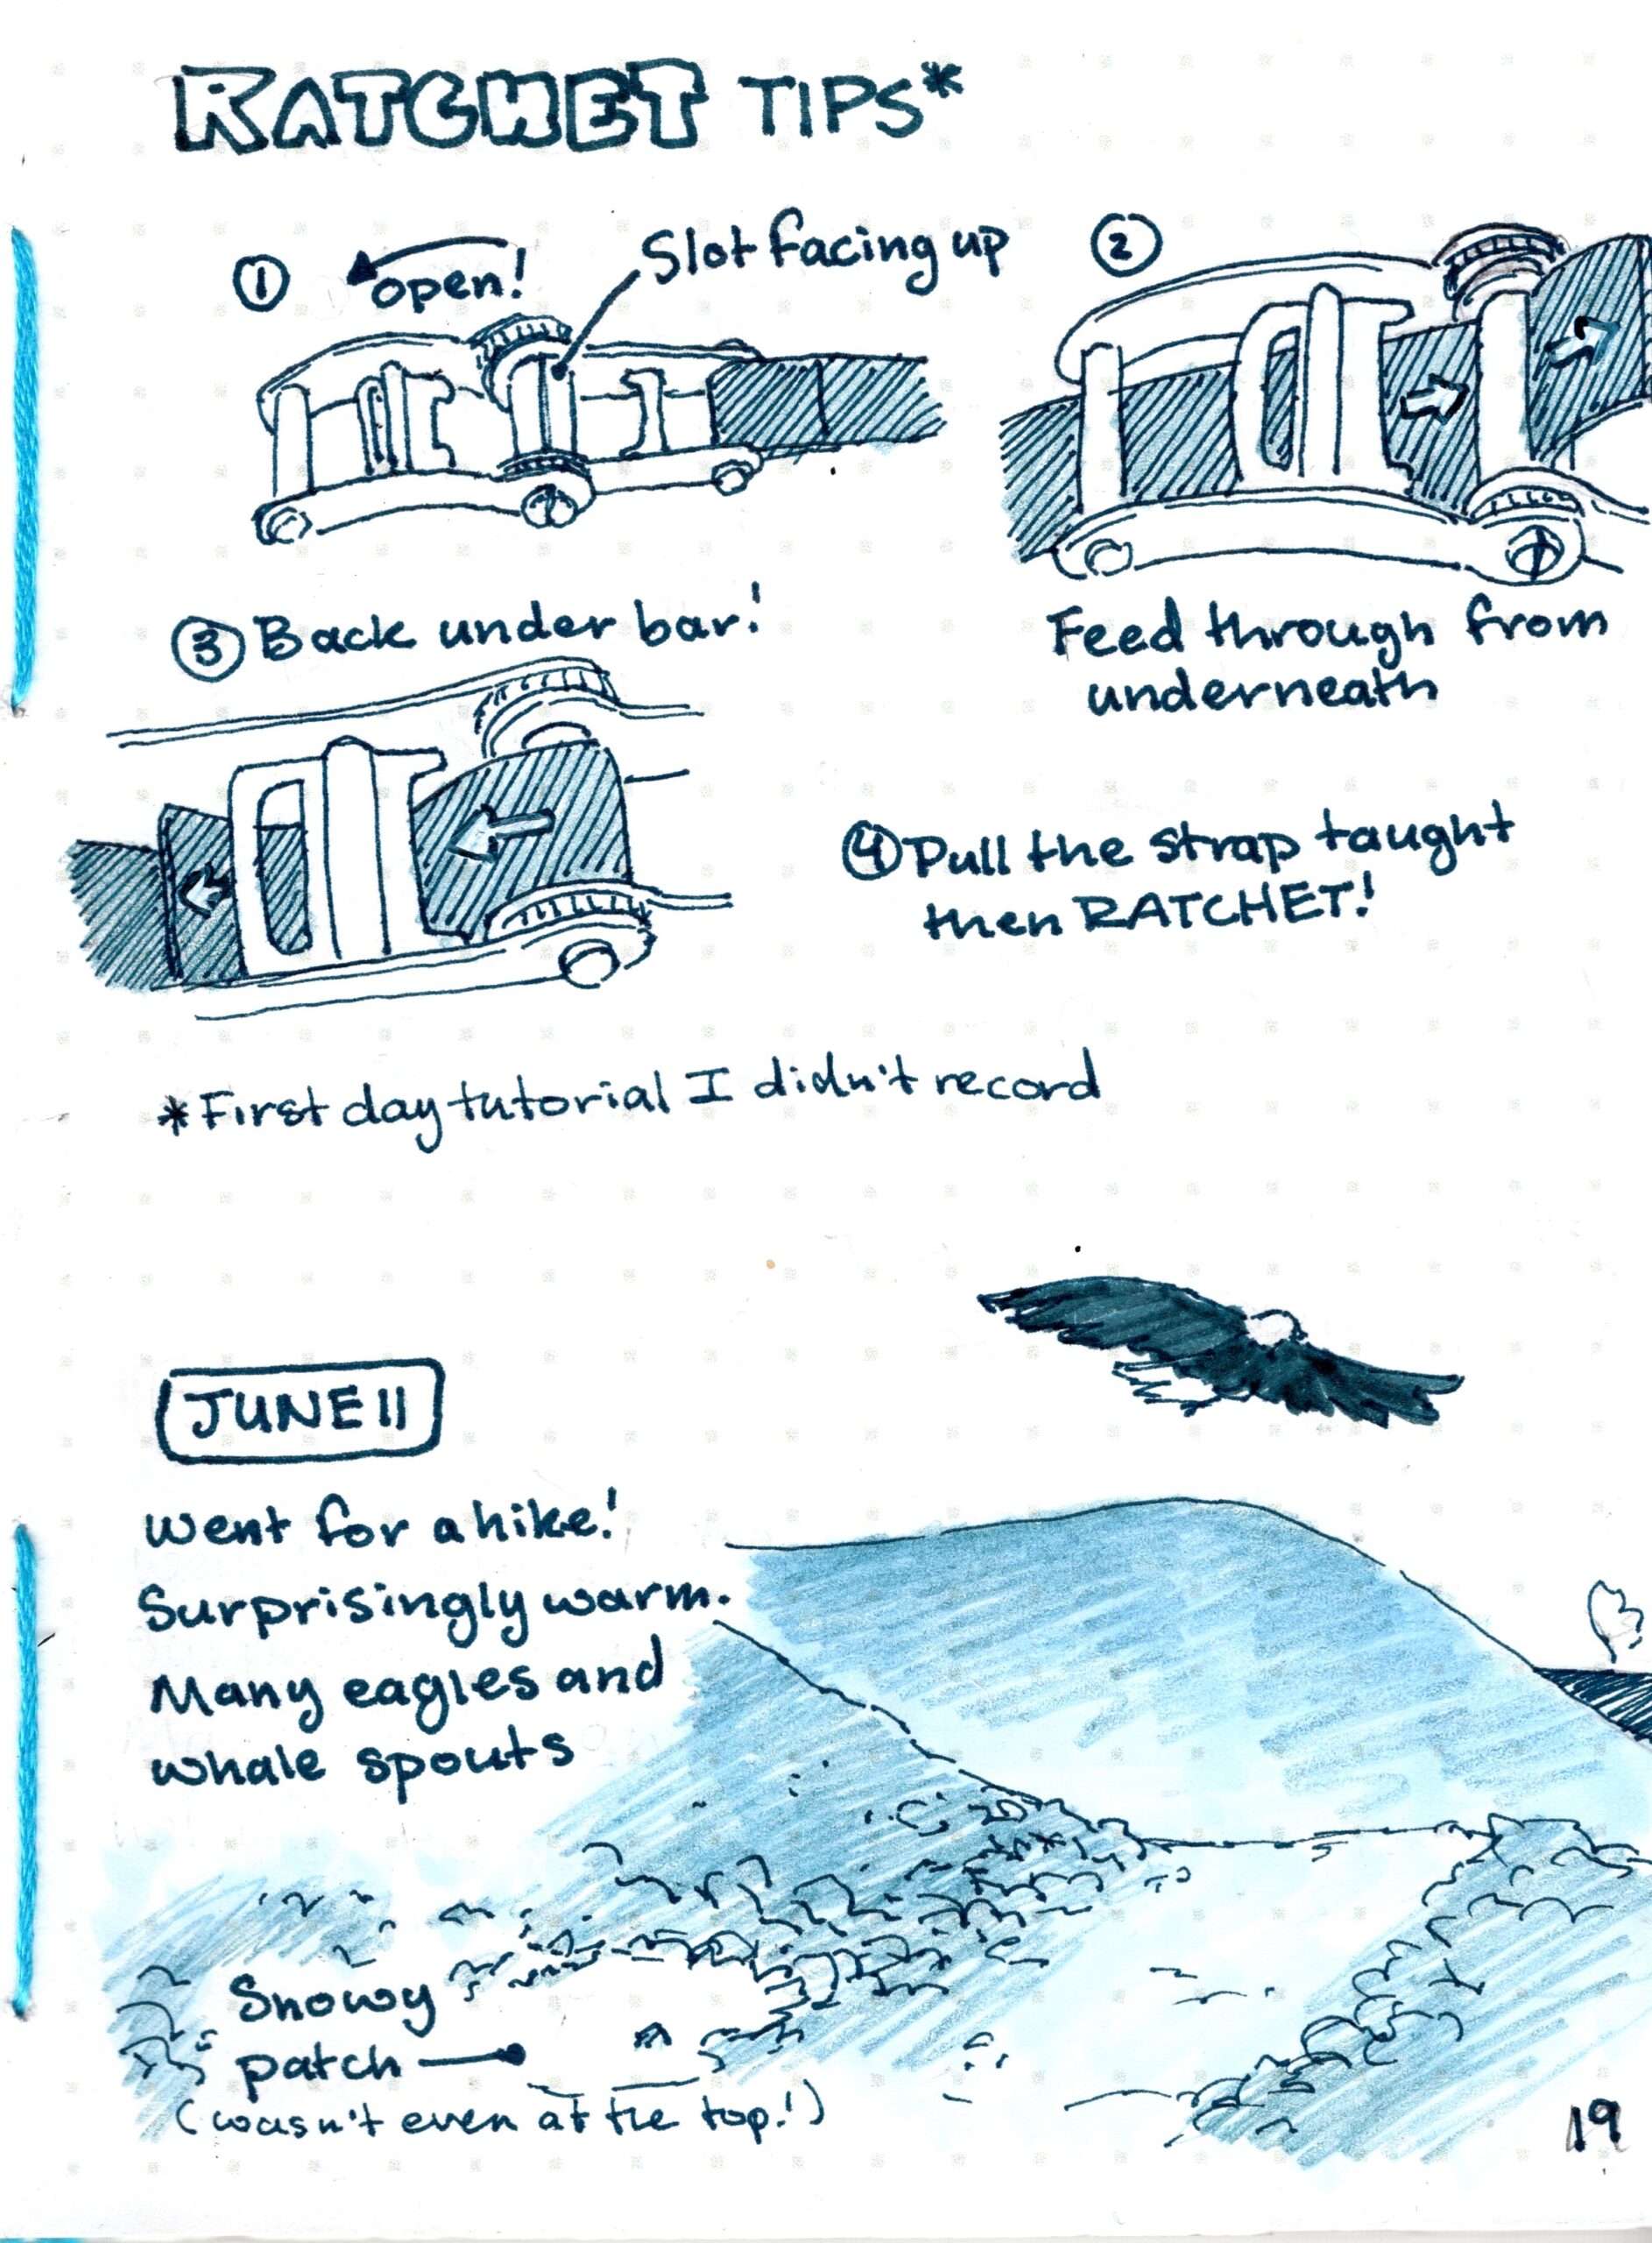 RATCHET TIPS*
① open!
Slot facing up
②
Feed through from
underneath
③ Back under bar!
④ Pull the strap taught
then RATCHET!
*First day tutorial I didn't record
JUNE 11
Went for a hike!
Surprisingly warm.
Many eagles and
whale spouts
Snowy
patch
(wasn't even at the top!)
19